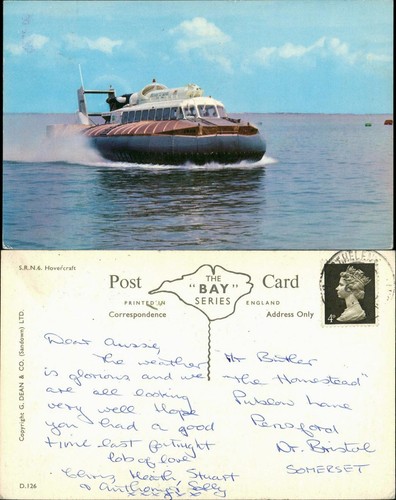 S.R.N.6. Hovercraft
Post Card
THE
"BAY"
SERIES
PRINTED IN ENGLAND
Correspondence
Address Only
4D
Copyright G. DEAN & CO. (Sandown) LTD.
D.126
Dear
The weather
is glorious and we
are all looking
very well Hope
you had a good
time last fortnight
lots of love
Chris, Heath, Stuart
& Anthony & Sally
xxxxx
Mr Butler
"The Homestead"
Publow Lane
Pensford
Nr. Bristol
SOMERSET